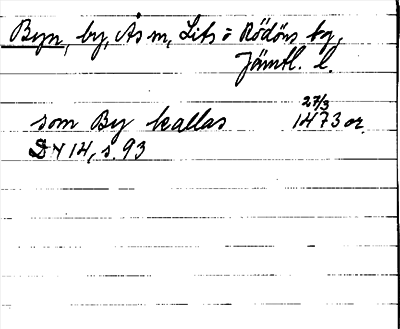 Byn, by, Ås sn, Lits o Rödöns tg,
Jämtl. l.
27/3
som By kallas 1473 or.
DN 14, s. 93